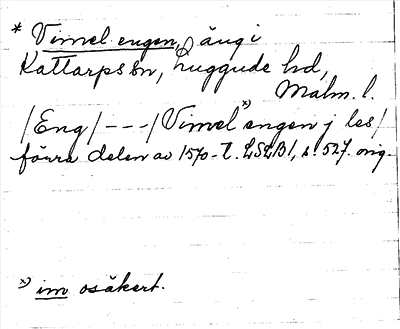 * Vimel engen, äng i
Kattarps sn, Luggude hd,
Malm. l.
/Eng/ - - - /Vimel x) engen j les/
förra delen av 1570-t. LSLB 1, s. 527. orig.
x) im osäkert.